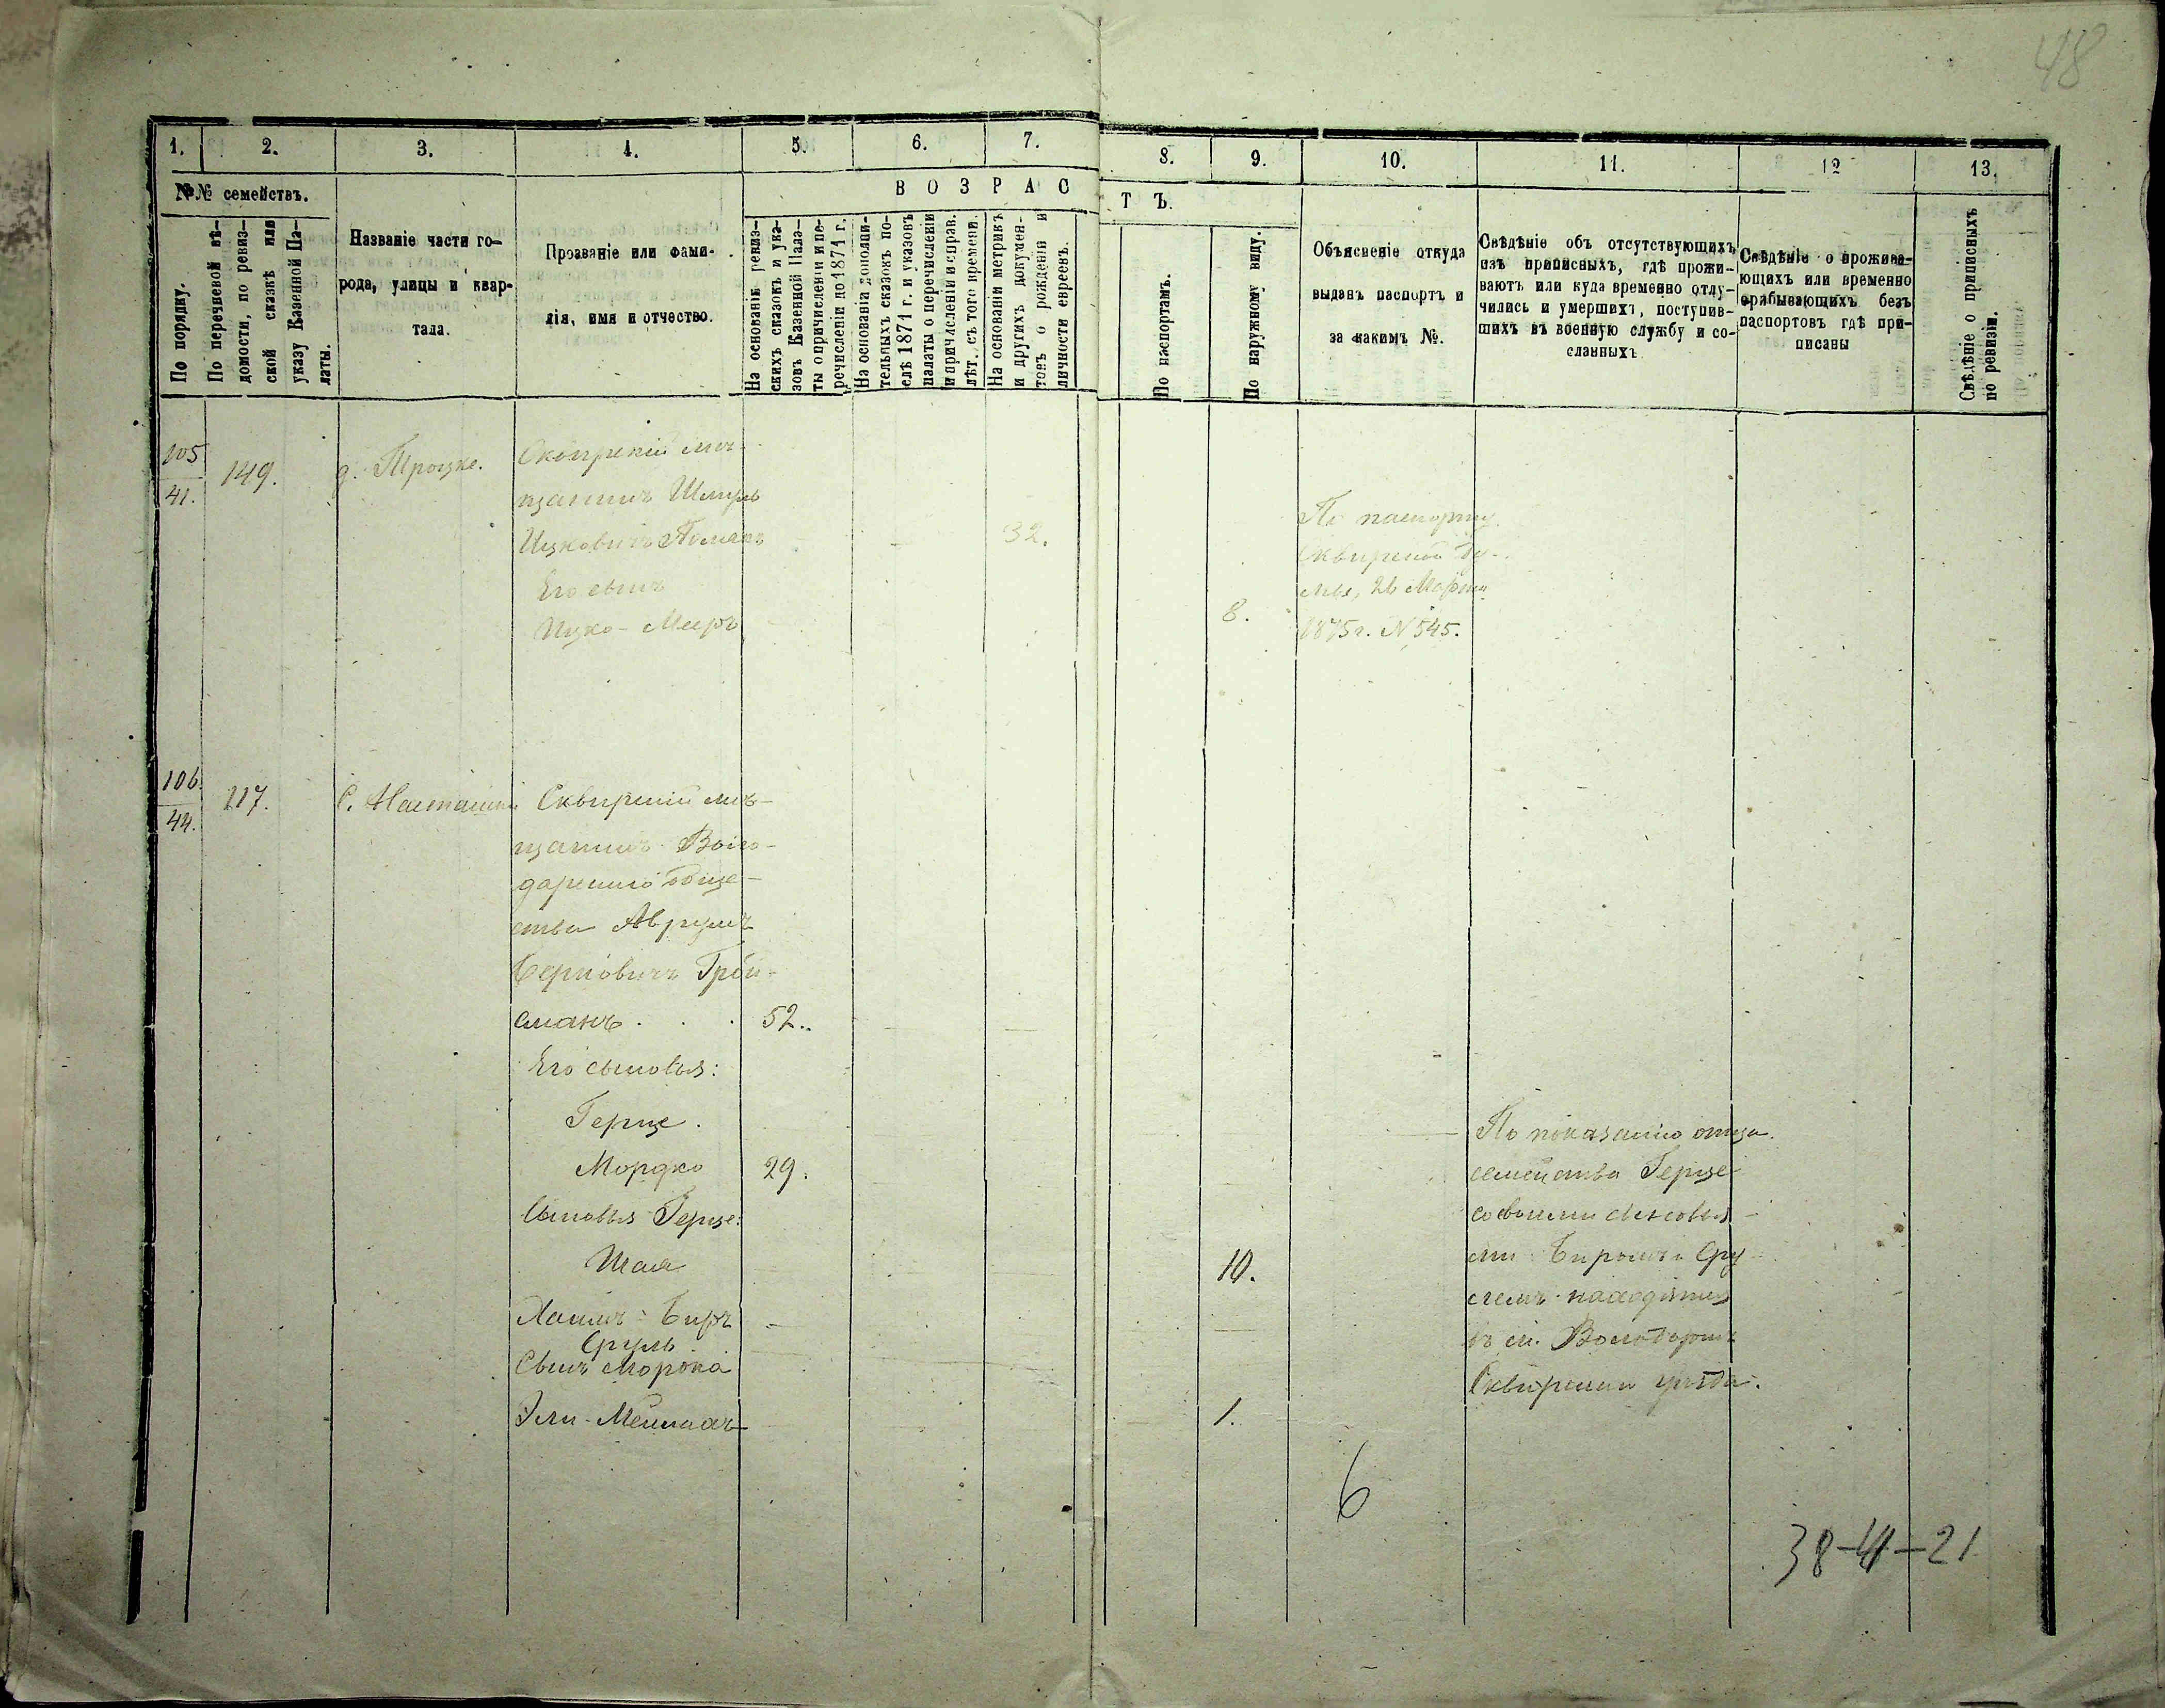 48
1. 2. 3. 4. 5. 6. 7. 8. 9. 10. 11. 12 13.
№№ семействъ.
В О З Р А С Т Ъ.
По порядку.
По перечневой вѣ-
домости, по ревиз-
ской сказкѣ или
указу Казенной Па-
латы.
Названіе части го-
рода, улицы и квар-
тала.
Прозваніе или фами-
лія, имя и отчество.
На основаніи ревиз-
скихъ сказокъ и ука-
зовъ Казенной Пала-
ты о причисленіи и пе-
речисленіи до 1871 г.
На основаніи дополни-
тельныхъ сказокъ по-
слѣ 1871 г. и указовъ
палаты о перечисленіи
и причисленіи и справ.
лѣт. съ того времени.
На основаніи метрикъ
и другихъ докумен-
товъ о рожденіи и
личности евреевъ.
По паспортамъ.
По наружному виду.
Объясненіе откуда
выданъ паспортъ и
за какимъ №.
Свѣдѣніе объ отсутствующихъ
изъ приписныхъ, гдѣ прожи-
ваютъ или куда временно отлу-
чились и умершихъ, поступив-
шихъ въ военную службу и со-
сланныхъ
Свѣдѣніе о прожива-
ющихъ или временно
прибывающихъ безъ
паспортовъ гдѣ при-
писаны
Свѣдѣніе о приписныхъ
по ревизіи.
105
41.
149.
д. Троцке.
Сквирскій мѣ-
щанинъ Шмуль
Ицковичъ
32.
Его сынъ
Ицко-Меръ
8.
По паспорту
Сквирской Ду-
мы, 26 Марта
1875 г. N 545.
106.
44.
217.
С. Насташки
Сквирскій мѣ-
щанинъ Воло-
дарскаго обще-
ства Аврумъ
Берковичъ Грой-
сманъ . . . 52.
Его сыновья:
Герце.
Мордко 29.
Сыновья Герце:
Шая 10.
Хаимъ-Беръ
Сруль
Сынъ Мордка
Эли-Мейлахъ 1.
По показанію отца
семейства Герце
со своими сыновья-
ми Беромъ и Сру-
лемъ находятся
въ м. Володаркѣ
Сквирскаго уѣзда.
6
38-41-21